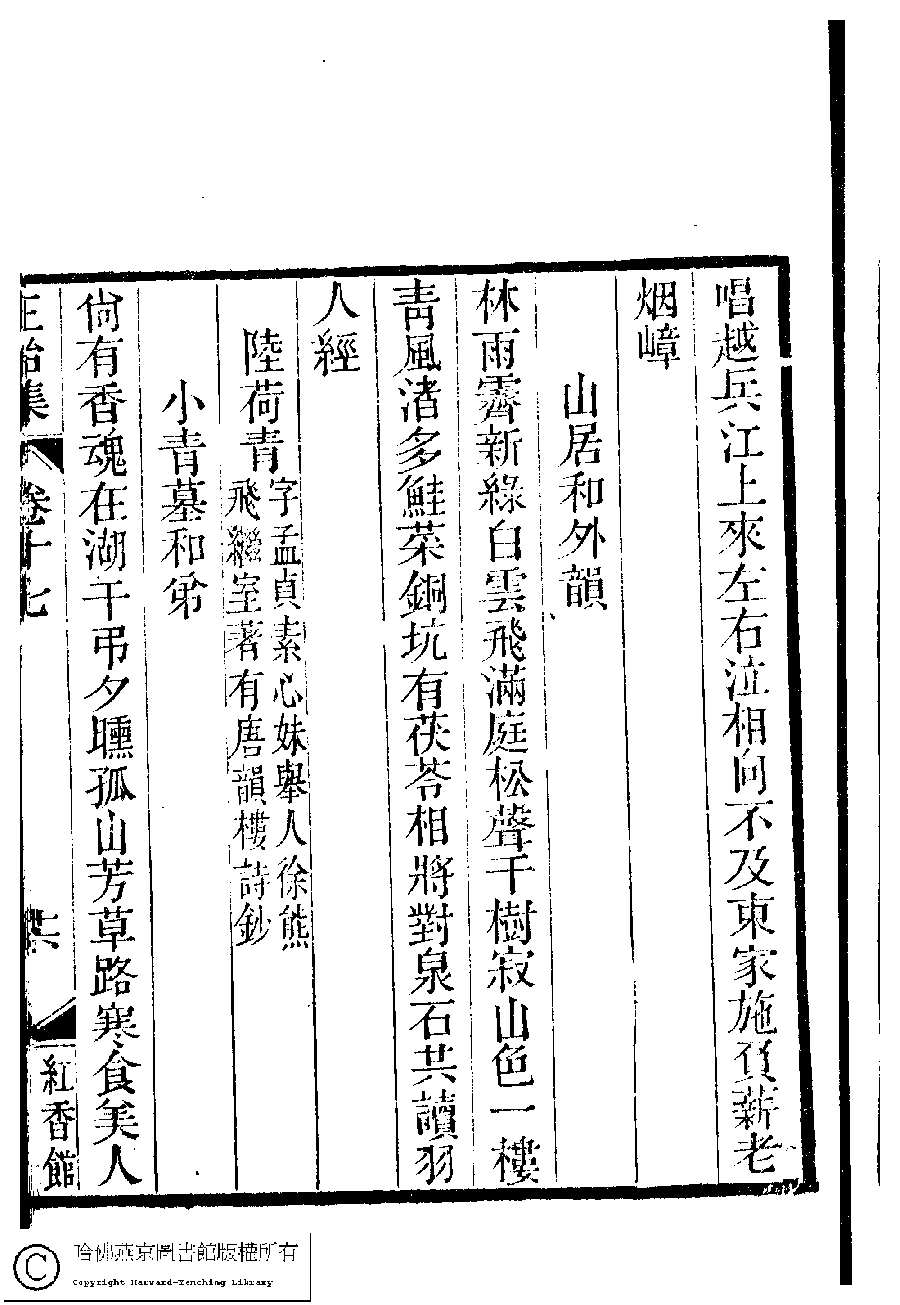 唱越兵江上來左右泣相向不及東家施負薪老
烟嶂
山居和外韻
林雨霽新綠白雲飛滿庭松聲千樹寂山色一樓
青風渚多鮭菜銅坑有茯苓相將對泉石共讀羽
人經
陸荷青字孟貞素心妹舉人徐熊
飛繼室著有唐韻樓詩鈔
小青墓和弟
尙有香魂在湖干弔夕曛孤山芳草路寒食美人
正始集 卷十七 紅香館
哈佛燕京圖書館版權所有
Copyright Harvard-Yenching Library